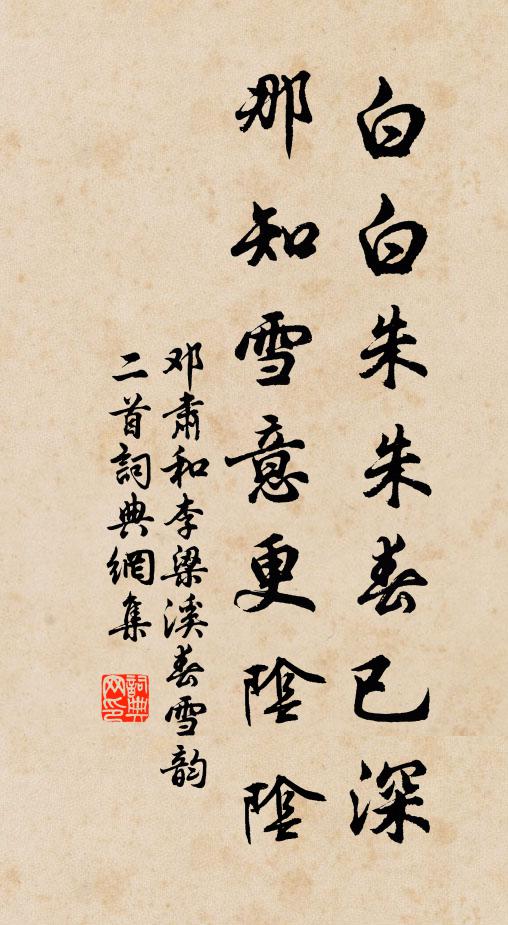 白白朱朱春已深
那知雪意更陰陰
邓肅和李梁溪春雪韵
二首詞典網集
詞典
网印